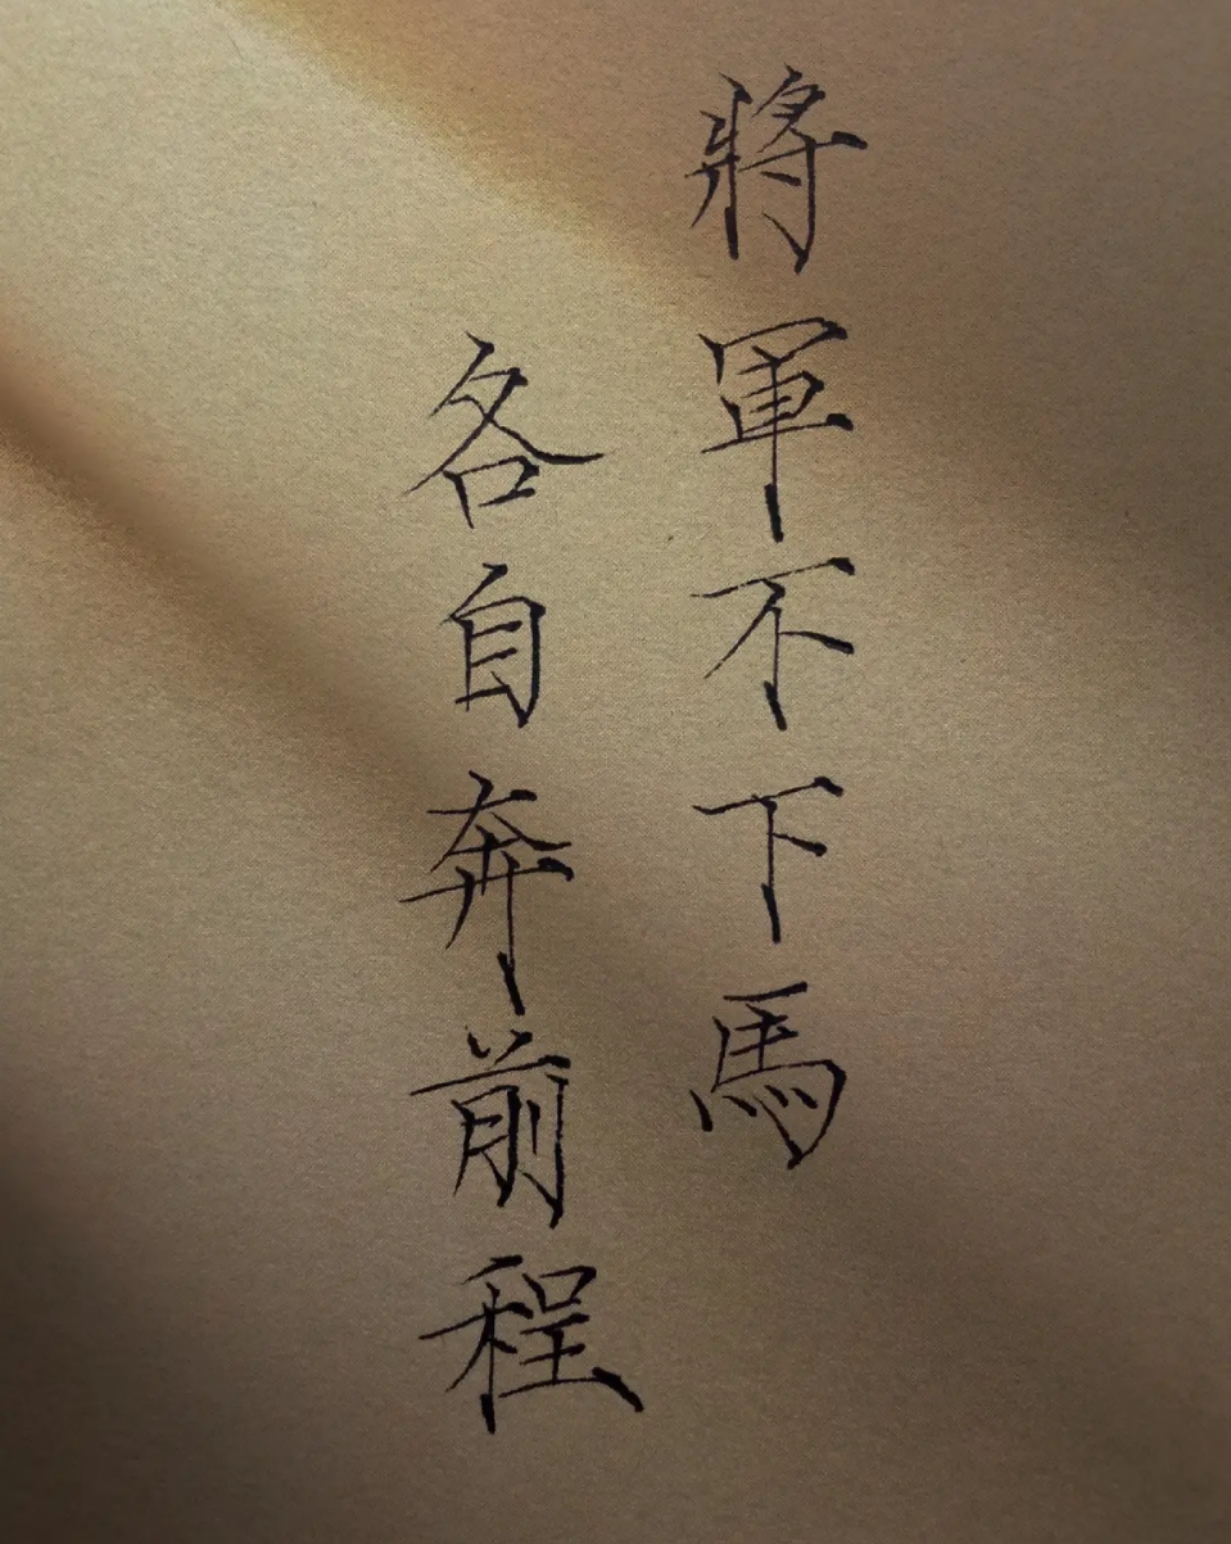 將軍不下馬
各自奔前程